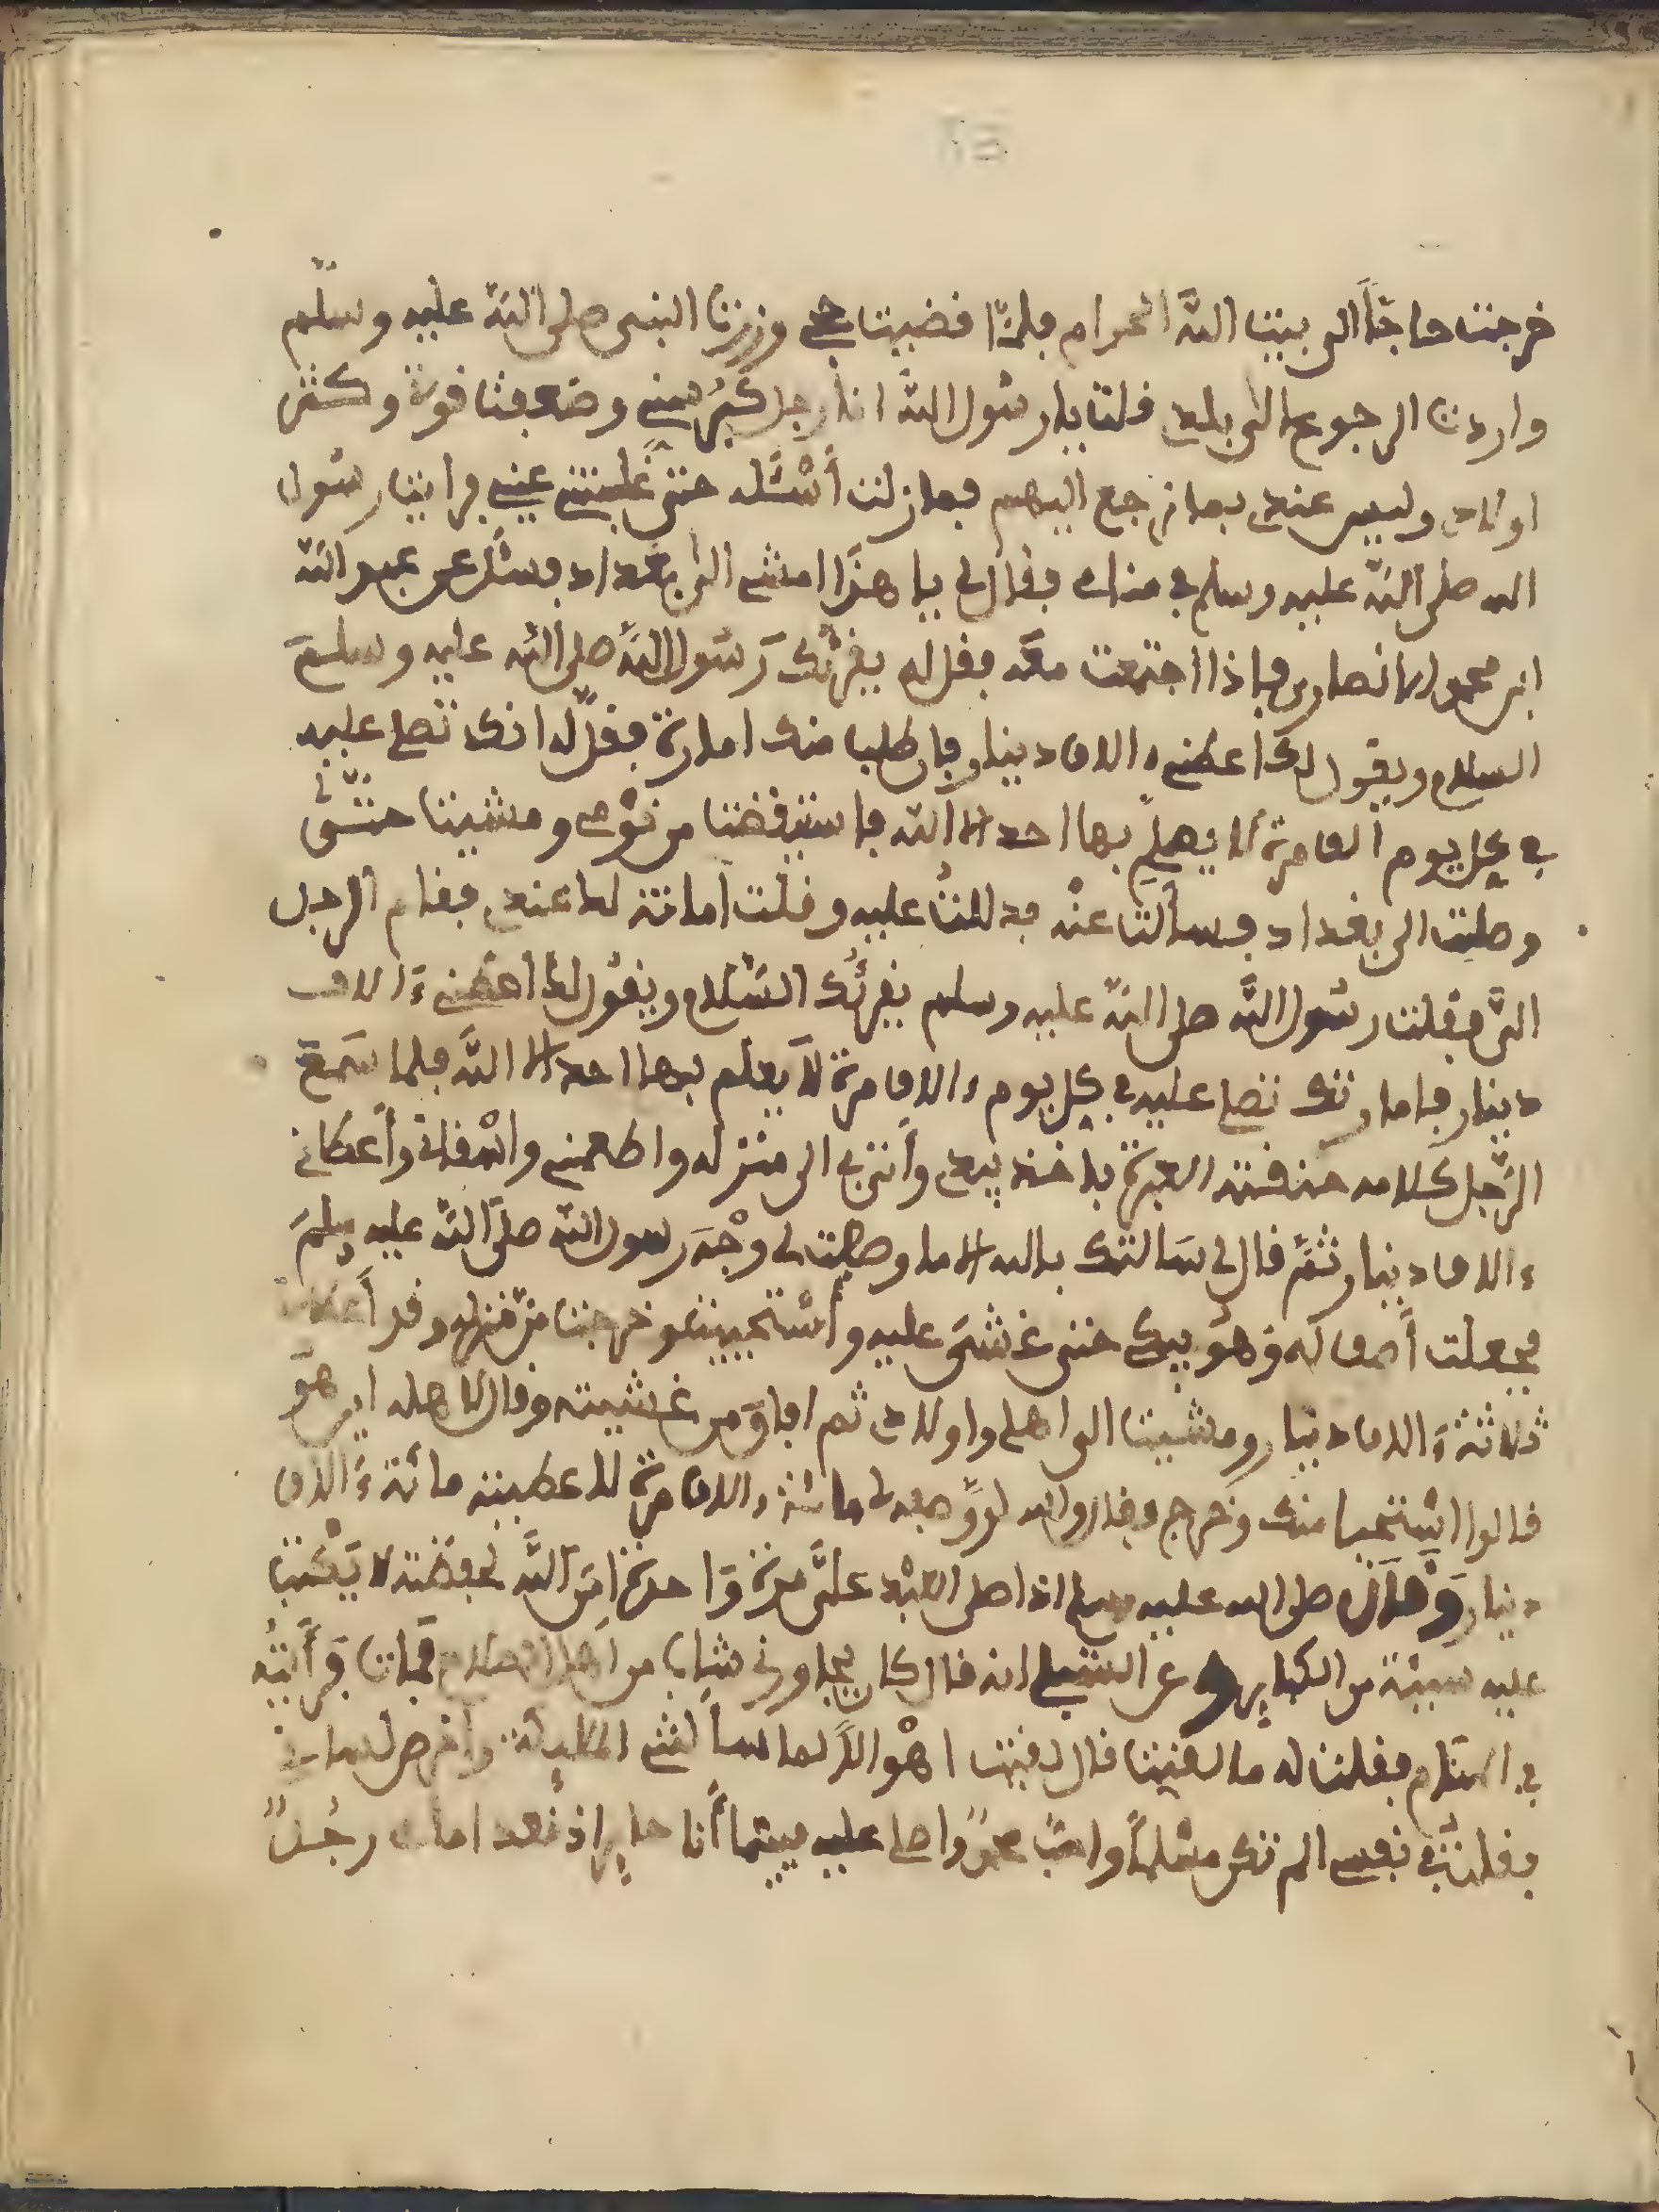 خرجت حاجّاً الى بيت اللّه الحرام فلمّا قضيت حجي وزرت النبي صلى اللّه عليه وسلّم
واردت الرجوع الى بلدي قلت يا رسول اللّه انا رجل كبر سني وضعفت قوتي وكثر
اولادي وليس عندي بما نرجع اليهم فما زلت أسْئله حتى غلبتني عيني فرايت رسول
الله صلى اللّه عليه وسلم في منامي فقال لي يا هذا امشي الى بغداد فسئل عن عبد اللّه
ابن محمد الانصاري فاذا اجتمعت معه فقل له يقرئك رسول اللّه صلى اللّه عليه وسلم
السلام ويقول لك اعطني ءالاف دينار فان طلب منك امارة فقل له انك تصلي عليه
في كل يوم ألف مرة لا يعلم بها احد الا اللّه فاستيقضت من نومي ومشيت حتّى
وصلت الى بغداد فسألت عنه فدللت عليه وقلت امانة لك عندي فقام الرجل
اليّ فقلت رسول اللّه صلى اللّه عليه وسلم يقرئك السّلام ويقول لك اعطني ءالاف
دينار فامارتك تصلي عليه في كل يوم ءالاف مرة لا يعلم بها احد الا اللّه فلما سمع
الرّجل كلامه خنقته العبرة فاخذ بيدي وأتى بي الى منزله واطعمني واسْقاني وأعطاني
ءالاف دينار ثمّ قال لي سالتك بالله الا ما وصفت لي وجْه رسول اللّه صلى اللّه عليه وسلم
فجعلت أصف له وهو يبكي حتى غشي عليه وأستحييت وخرجت من منزله وقد أعطاني
ثلاثة ءالاف دينار ومشيت الى اهلي واولادي ثم افاق من غشيته وقال لاهله اين هو
قالوا اسْتحيا منك وخرج فقال والله لو وصفه لي مائة ءالاف مرة لاعطيته مائة ءالاف
دينار وقال صلى الله عليه وسلم اذا صلى العبْد عليّ مرة واحدة امر اللّه لحفظته لا يكتب
عليه سيئة من الكباير وعن الشبلي انه قال كان يجاورني شاب من اهل فمات فرأيته
في المنام فقلت له ما لقيت قال لقيت اهْوالا لما سألتني الملائكة وأخرص لساني
فقلت في نفسي الم نكن مسْلماً واحبّ محمدا واصلي عليه فبينما أنا حاير اذ قعد امامي رجُلٌ